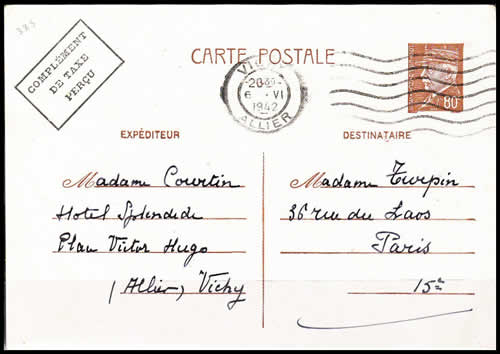 385
COMPLÉMENT
DE TAXE
PERÇU
CARTE POSTALE
VICHY
20
6 - VI
1942
ALLIER
80
EXPÉDITEUR
Madame Courtin
Hotel Splendide
Place Victor Hugo
(Allier) Vichy
DESTINATAIRE
Madame Turpin
36 rue du Laos
Paris
15e